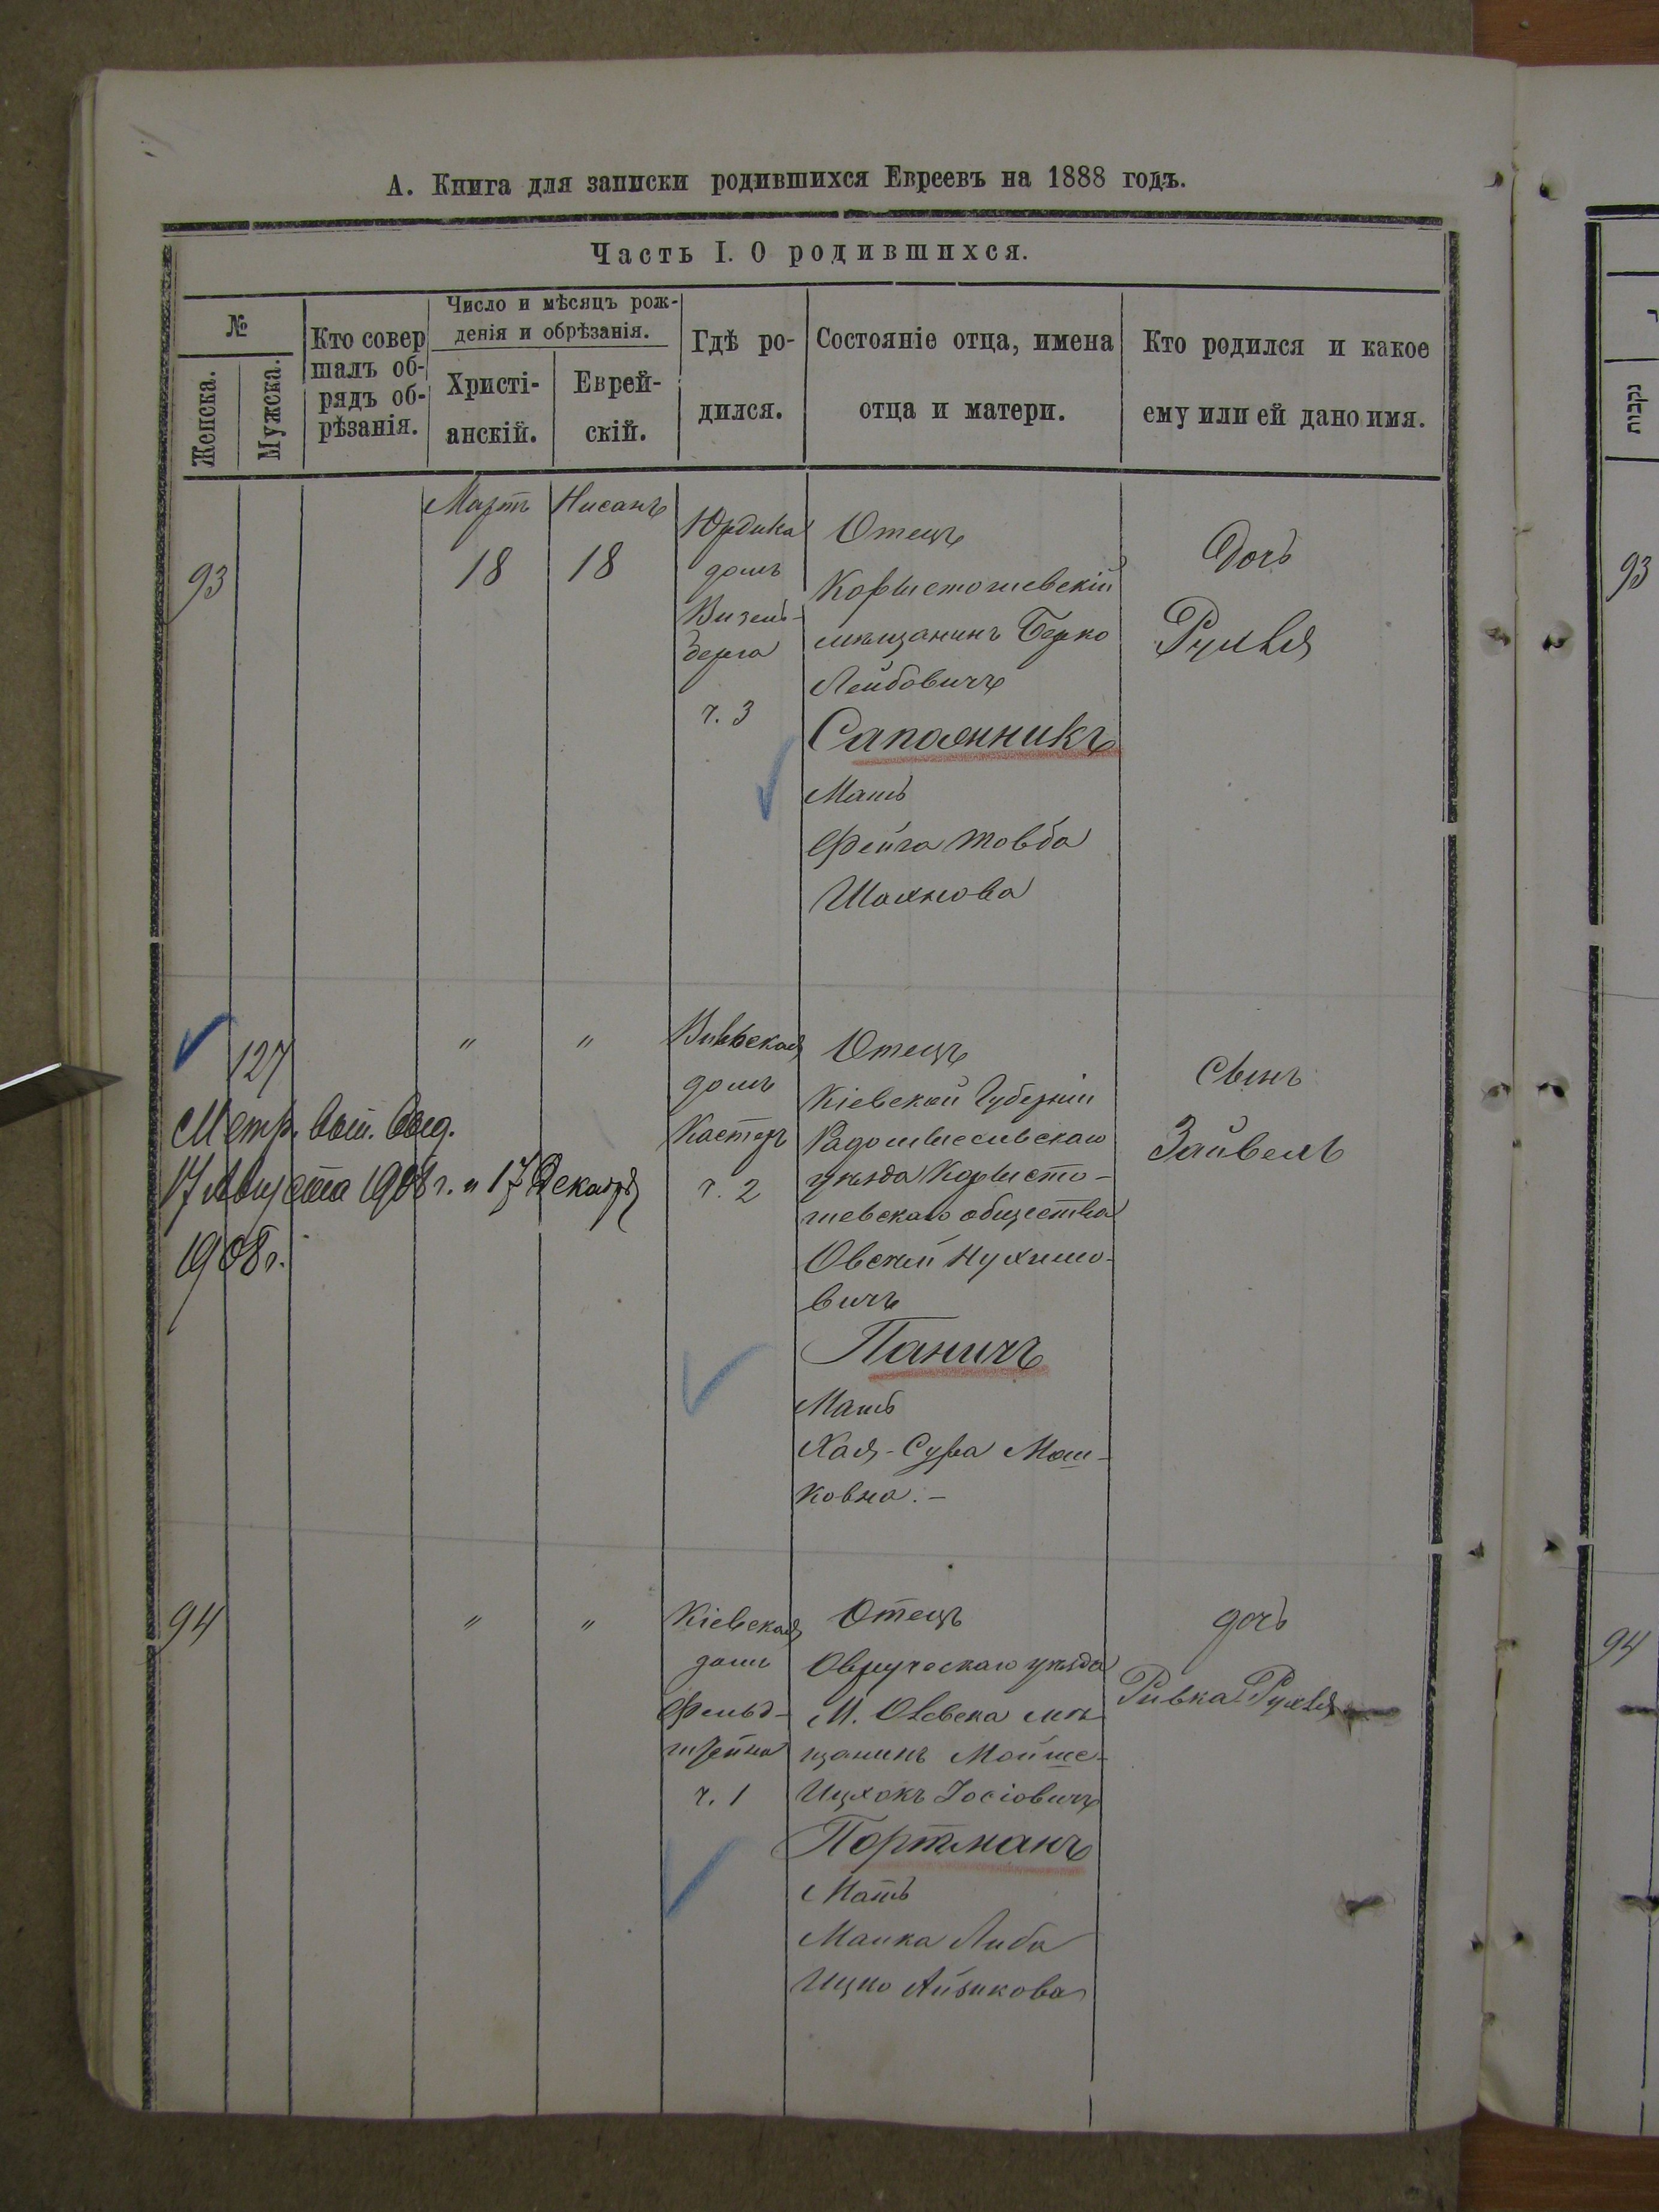 А. Книга для записки родившихся Евреевъ на 1888 годъ.
Часть I. О родившихся.
№
Женска.
Мужска.
Кто совер
шалъ об-
рядъ об-
рѣзанія.
Число и мѣсяцъ рож-
денія и обрѣзанія.
Христі-
анскій.
Еврей-
скій.
Гдѣ ро-
дился.
Состояніе отца, имена
отца и матери.
Кто родился и какое
ему или ей дано имя.
93
Мартъ
18
Нисанъ
18
домъ
Визель-
берга
ч. 3
Отецъ
Коростошевскій
мѣщанинъ Берко
Лейбовичъ
Сапожникъ
Мать
Фейга Товба
Шахнова
Дочь
Рухля
127
Метр. вып. выд.
17 Августа 1908 г. и 17 Декабря
1908 г.
"
"
домъ
ч. 2
Отецъ
Кіевской Губерніи
Радомысльскаго
уѣзда Коросто-
шевскаго общества
Овсей Нухимо-
вичъ
Паничъ
Мать
Хая-Сура Мош-
ковна.-
Сынъ
Зайвель
94
"
"
Кіевская
домъ
Фельд-
ч. 1
Отецъ
Овручскаго уѣзда
М. Олевска мѣ
щанинъ Мойше-
Ицхокъ Іосіовичъ
Портманъ
Мать
Либа
Ицко Айзикова
дочь
Ривка Рухля
נקבות
93
94